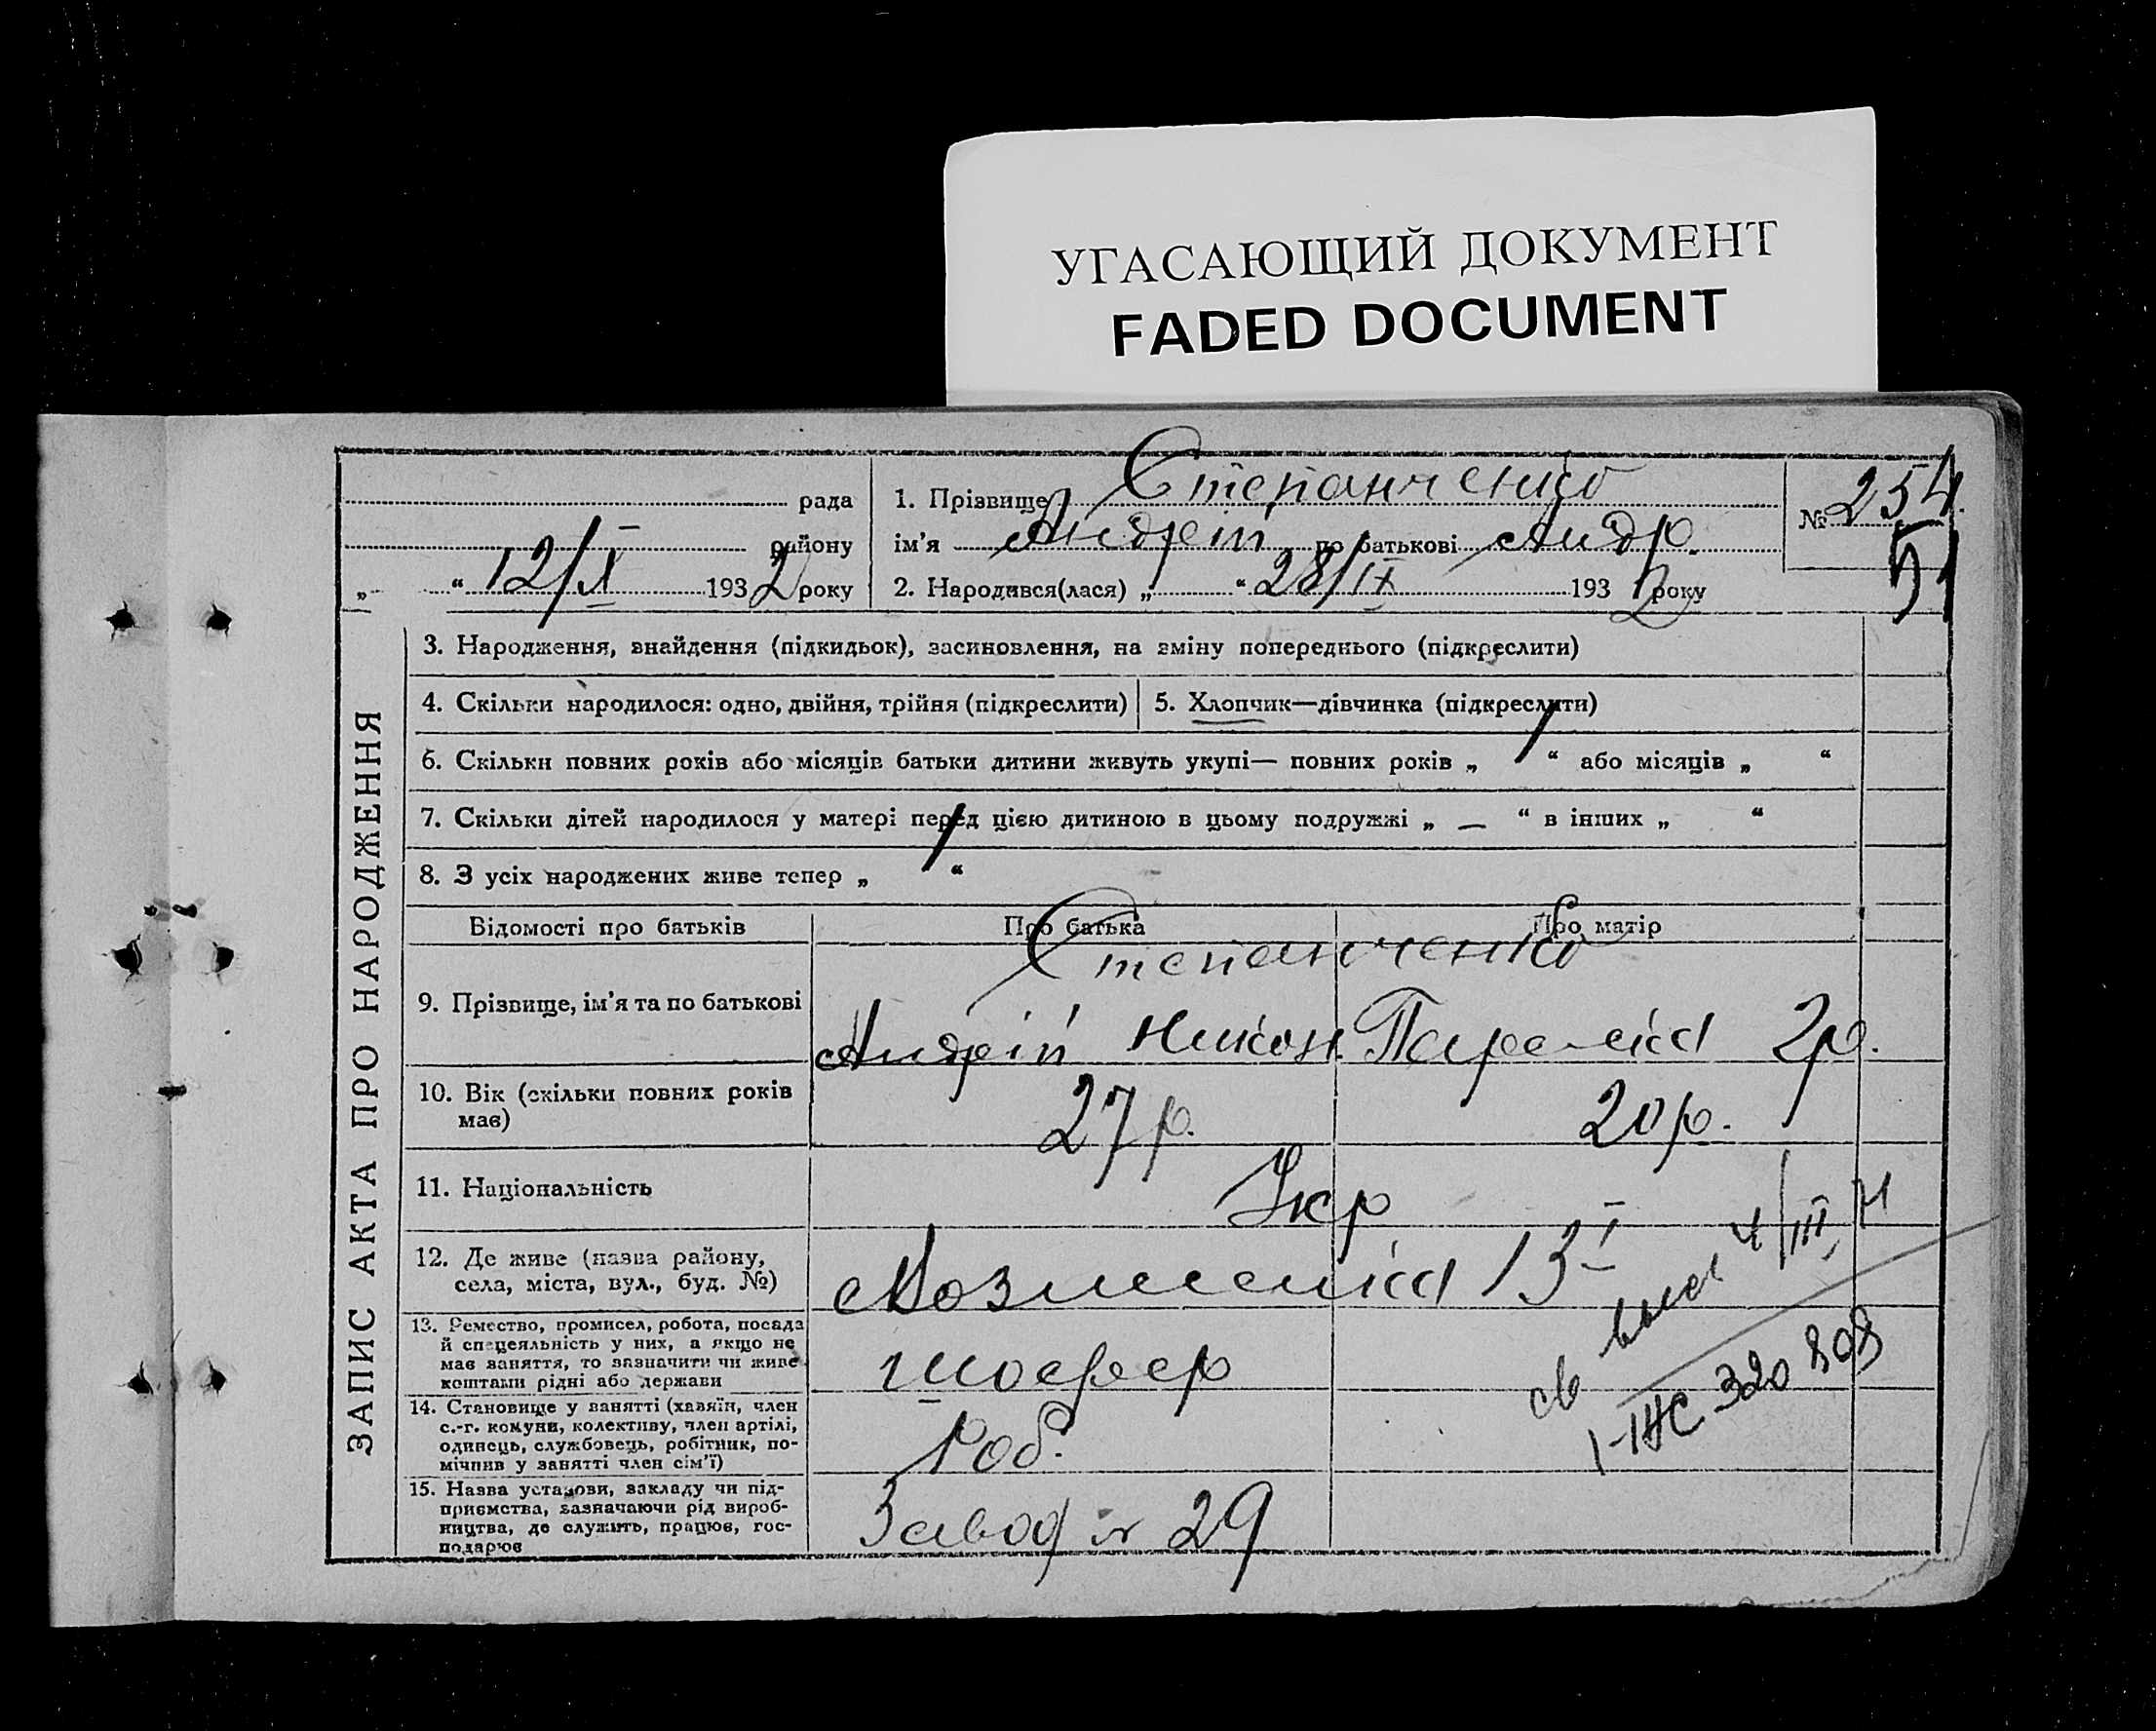 УГАСАЮЩИЙ ДОКУМЕНТ
FADED DOCUMENT
рада
району
„ “ 12/X 1932 року
1. Прізвище Степанченко
ім'я Андрій по батькові Андр.
2. Народився(лася) „ “ 28/IX 1932 року
№ 254
51
ЗАПИС АКТА ПРО НАРОДЖЕННЯ
3. Народження, знайдення (підкидьок), засиновлення, на зміну попереднього (підкреслити)
4. Скільки народилося: одно, двійня, трійня (підкреслити)
5. Хлопчик—дівчинка (підкреслити)
6. Скільки повних років або місяців батьки дитини живуть укупі— повних років „ 1 “ або місяців „ “
7. Скільки дітей народилося у матері перед цією дитиною в цьому подружжі „ — “ в інших „ “
8. З усіх народжених живе тепер „ 1 “
Відомості про батьків
Про батька
Про матір
Степанченко
9. Прізвище, ім'я та по батькові
Андрій Никон.
Параска Гр.
10. Вік (скільки повних років
має)
27 р.
20 р.
11. Національність
Укр
12. Де живе (назва району,
села, міста, вул., буд. №)
13
13. Ремество, промисел, робота, посада
й спецеяльність у них, а якщо не
має заняття, то зазначити чи живе
коштами рідні або держави
шофер
14. Становище у занятті (хазяїн, член
с.-г. комуни, колективу, член артілі,
одинець, службовець, робітник, по-
мічник у занятті член сім'ї)
Роб.
15. Назва установи, закладу чи під-
приємства, зазначаючи рід вироб-
ництва, де служить, працює, гос-
подарює
Завод № 29
св выд 4/III
I-ЖС 320808